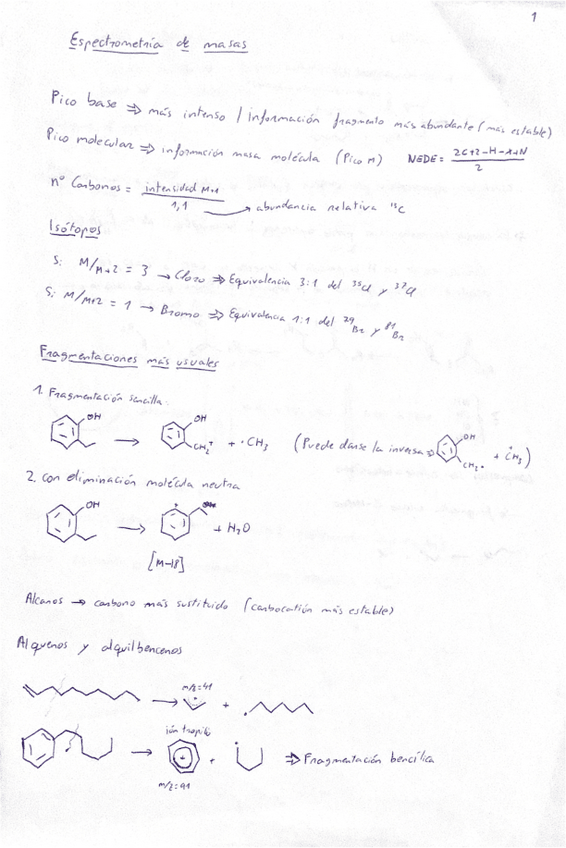 1
Espectrometría de masas
Pico base ⇒ más intenso / información fragmento más abundante (más estable)
Pico molecular ⇒ información masa molécula (Pico M) NEDE = (2C+2-H-X+N)/2
nº Carbonos = intensidad M+1 / 1,1 → abundancia relativa ¹³C
Isótopos
Si M/M+2 = 3 → Cloro ⇒ Equivalencia 3:1 del ³⁵Cl y ³⁷Cl
Si M/M+2 = 1 → Bromo ⇒ Equivalencia 1:1 del ⁷⁹Br y ⁸¹Br
Fragmentaciones más usuales
1. Fragmentación sencilla
OH → OH CH₂⁺ + ·CH₃ (Puede darse la inversa ⇒ OH CH₂· + ⁺CH₃)
2. con eliminación molécula neutra
OH → + H₂O
[M-18]
Alcanos → carbono más sustituido (carbocatión más estable)
Alquenos y alquilbencenos
m/z=41
→ +
ión tropilio
→ + ⇒ Fragmentación bencílica
m/z=91